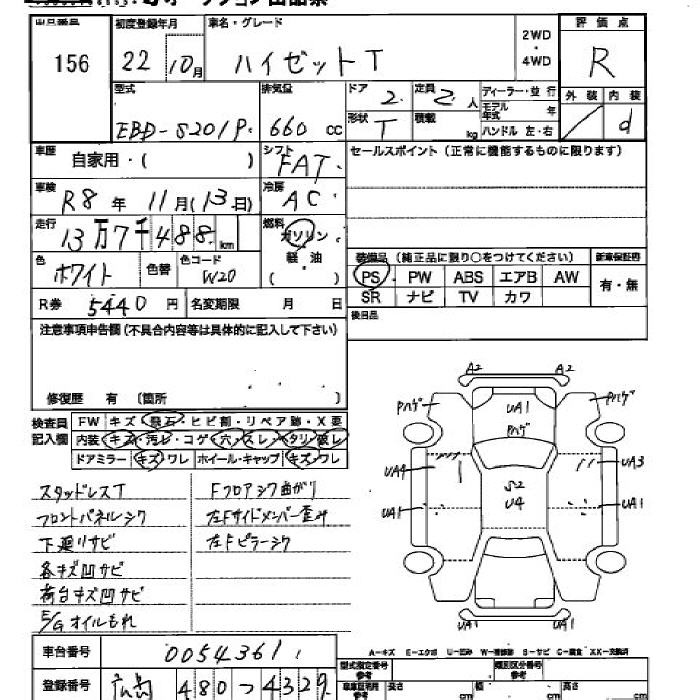 出品番号 初度登録年月 車名・グレード 2WD・4WD 評価点
156 22 10月 ハイゼットT R
型式 排気量 ドア 2 定員 2人 ディーラー・並行 外装 内装
EBD-S201P 660cc 形状 T 積載 kg モデル年式 年 ハンドル 左・右 d
車歴 自家用・( ) シフト FAT セールスポイント(正常に機能するものに限ります)
車検 R8年 11月(13日) 冷房 AC
走行 13万7千488km 燃料 ガソリン 軽油 ( )
色 ホワイト 色替 色コード W20
装備品(純正品に限り○をつけてください) 新車保証書
PS PW ABS エアB AW 有・無
SR ナビ TV カワ
R券 5440円 名変期限 月 日 後日品
注意事項申告欄(不具合内容等は具体的に記入して下さい)
修復歴 有 (箇所 )
検査員記入欄 FW キズ・飛石・ヒビ割・リペア跡・X要
内装 キズ・汚レ・コゲ・穴・スレ・タリ・破レ
ドアミラー キズ・ワレ ホイール・キャップ キズ・ワレ
A2 A2
Pハゲ UA1 Pハゲ
Pハゲ
UA4 S2 UA3
UA1 U4 UA1
UA1 UA1
スタッドレスT Fフロアシワ曲がり
フロントパネルシワ 左Fサイドメンバー歪み
下廻りサビ 左Fピラーシワ
各キズ凹サビ
荷台キズ凹サビ
E/Gオイルもれ
A-キズ E-エクボ U-凹み W-補修跡 S-サビ C-腐食 XX-交換済
車台番号 0054361
登録番号 広島 480 つ 4329
型式指定番号 類別区分番号
長さ cm 幅 cm 高さ cm